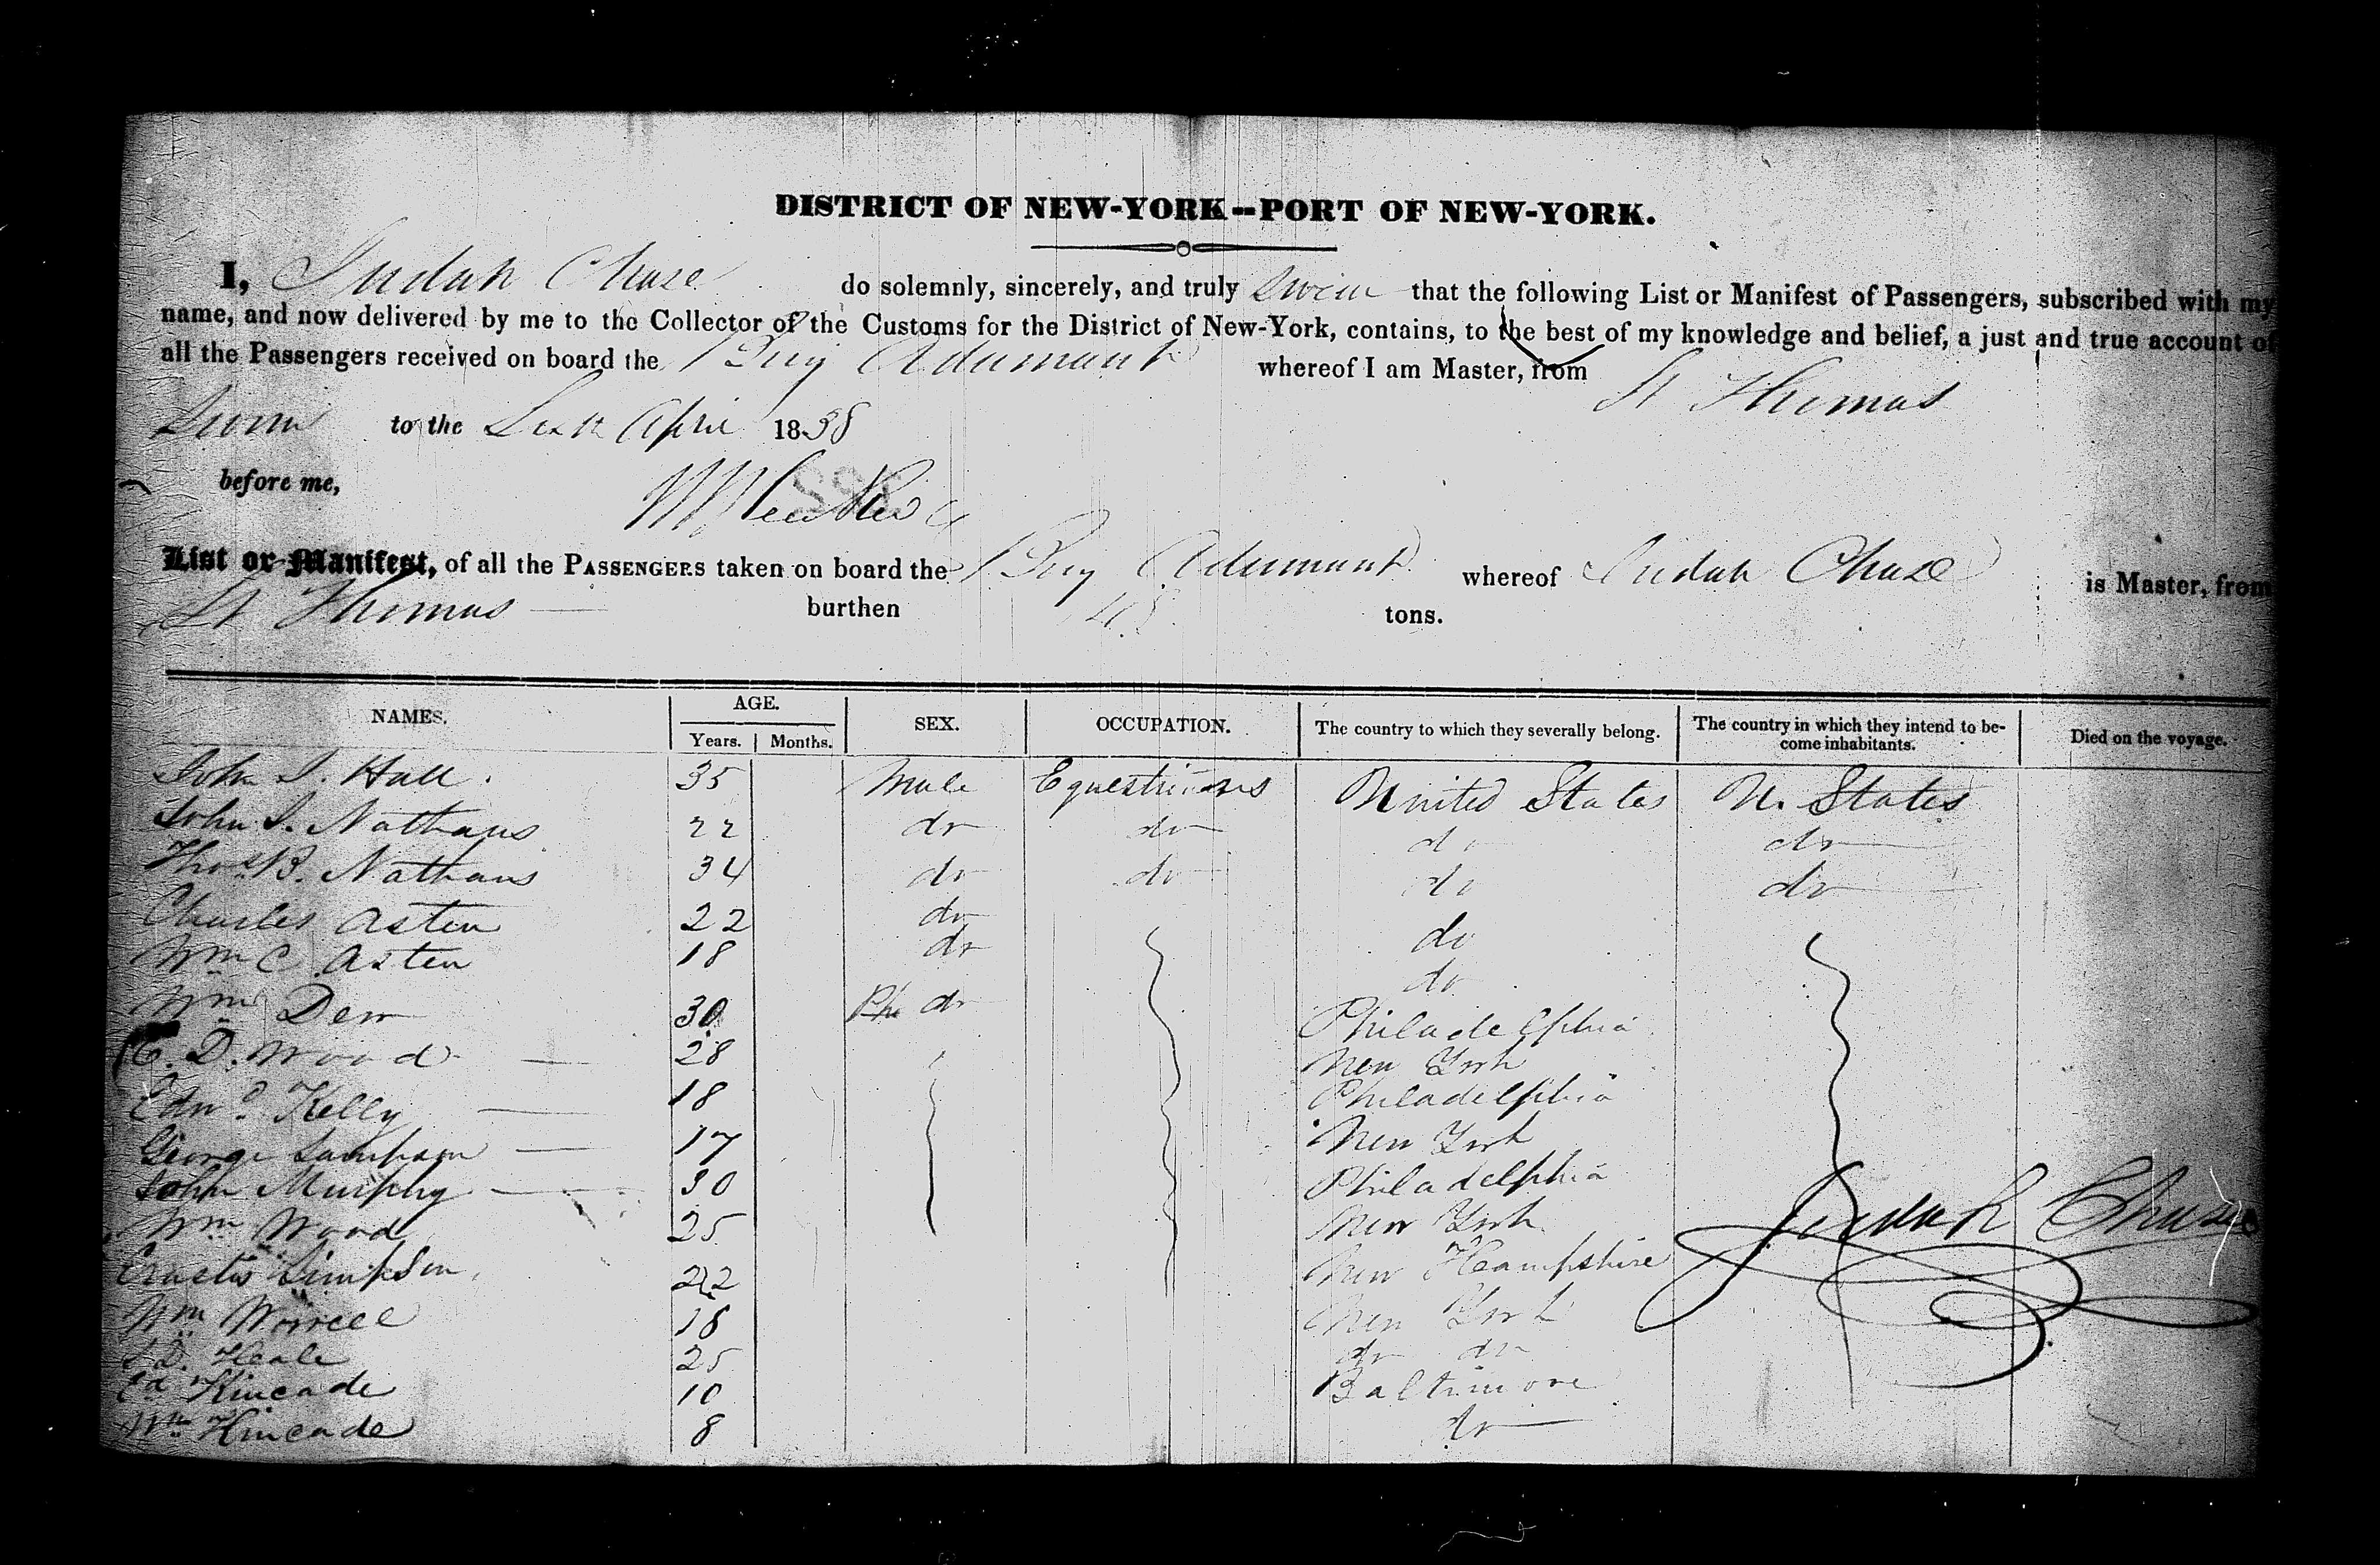 DISTRICT OF NEW-YORK--PORT OF NEW-YORK.
I, Judah Chase do solemnly, sincerely, and truly swear that the following List or Manifest of Passengers, subscribed with my
name, and now delivered by me to the Collector of the Customs for the District of New-York, contains, to the best of my knowledge and belief, a just and true account of
all the Passengers received on board the Brig Adamant whereof I am Master, from
St Thomas
Sworn to the April 1838
before me,
List or Manifest, of all the PASSENGERS taken on board the Brig Adamant whereof Judah Chase is Master, from
St Thomas burthen tons.
NAMES. AGE. SEX. OCCUPATION. The country to which they severally belong. The country in which they intend to be-come inhabitants. Died on the voyage.
Years. Months.
John S. Hall. 35 Male Equestrians United States U. States
John S. Nathans 22 do do do do
Thos B. Nathans 34 do do do do
Charles Asten 22 do do
Wm C. Asten 18 do do
Wm Derr 30 do Philadelphia
E. D. Wood 28 New York
Edwd Kelly 18 Philadelphia
George Sampson 17 New York
John Murphy 30 Philadelphia
Wm Wood 25 New York
Simpson 22 New Hampshire
Wm Worrell 18 New York
D. Heale 25 do do
Ed Kincade 10 Baltimore
Wm Kincade 8 do
Judah Chase